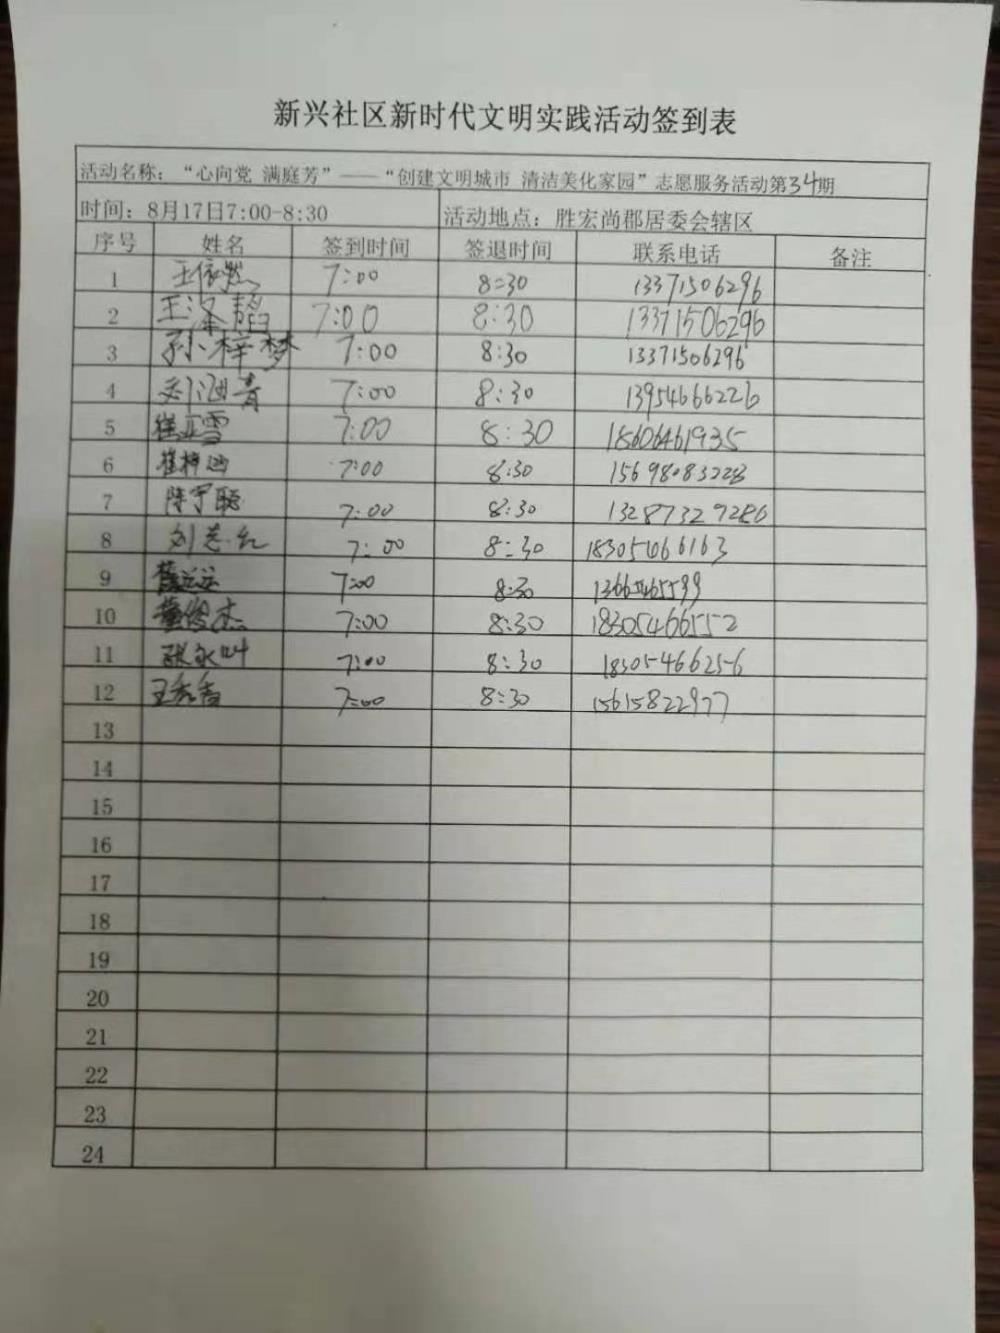 新兴社区新时代文明实践活动签到表
活动名称：“心向党 满庭芳”——“创建文明城市 清洁美化家园”志愿服务活动第34期
时间：8月17日7:00-8:30 活动地点：胜宏尚郡居委会辖区
序号 姓名 签到时间 签退时间 联系电话 备注
1 王依然 7:00 8:30 13371506296
2 王泽 7:00 8:30 13371506296
3 孙梓梦 7:00 8:30 13371506296
4 刘 青 7:00 8:30 13954666226
5 崔亚雪 7:00 8:30 18606461935
6 崔梓涵 7:00 8:30 15698083228
7 陈宇聪 7:00 8:30 13287329286
8 刘志红 7:00 8:30 18305466163
9 7:00 8:30
10 董俊杰 7:00 8:30 18305466552
11 张永叫 7:00 8:30 18305466256
12 王秀香 7:00 8:30 15615822977
13
14
15
16
17
18
19
20
21
22
23
24